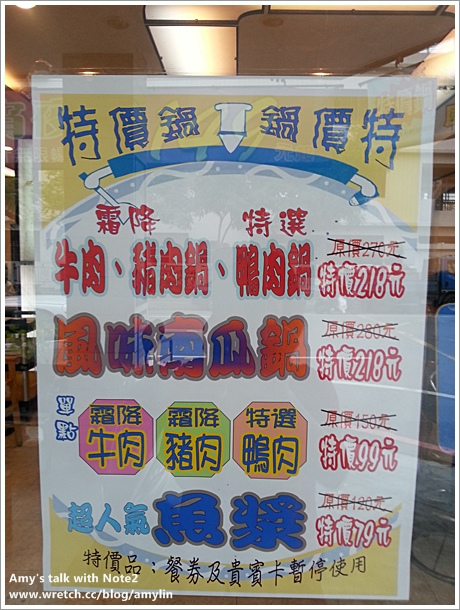 特價鍋 鍋價特
霜降 特選
牛肉、豬肉鍋、鴨肉鍋
原價276元
特價218元
風味南瓜鍋
原價280元
特價218元
單點
霜降牛肉
霜降豬肉
特選鴨肉
原價150元
特價99元
超人氣 魚漿
原價120元
特價79元
特價品；餐券及貴賓卡暫停使用
Amy's talk with Note2
www.wretch.cc/blog/amylin